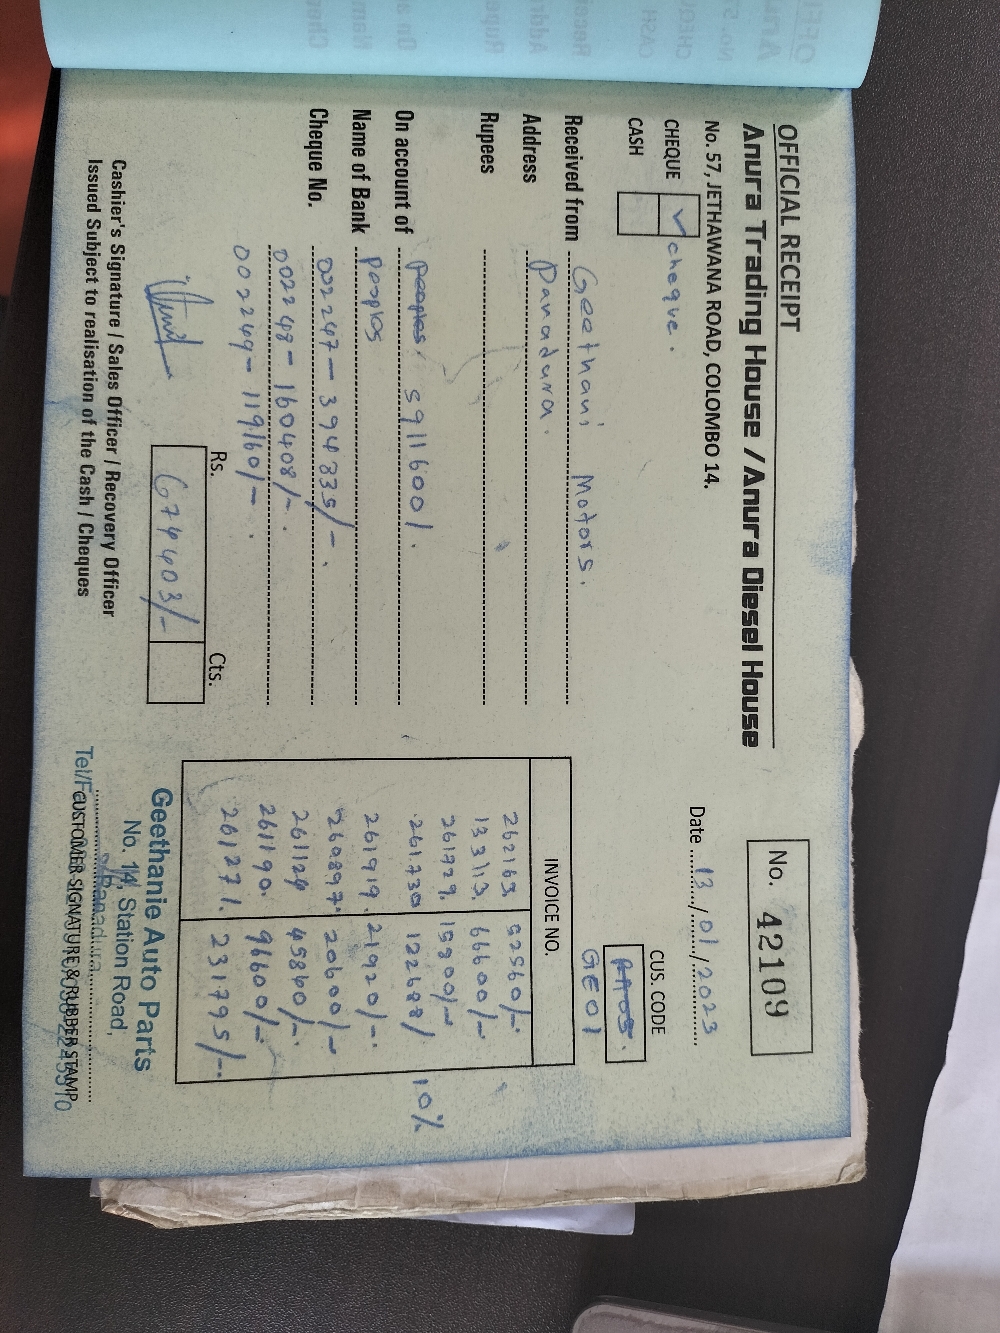 OFFICIAL RECEIPT
Anura Trading House / Anura Diesel House
No. 57, JETHAWANA ROAD, COLOMBO 14.
No. 42109
Date 13/01/2023
CHEQUE ✓ cheque.
CASH
CUS. CODE
GE01
Received from Geethani Motors.
Address Panadura.
Rupees
On account of peoples. 5911600/.
Name of Bank peoples
Cheque No. 002247- 394835/-.
002248- 160408/-.
002249- 119160/-.
Rs. Cts.
674403/-
Cashier's Signature / Sales Officer / Recovery Officer
Issued Subject to realisation of the Cash / Cheques
INVOICE NO.
262163. 52560/-
133113. 66600/-
261729. 15300/-
261730 122688/ 10%
261919. 21920/-.
260897. 20600/-
261124 45840/-.
261190. 96600/-
261271. 231795/-.
Geethanie Auto Parts
No. 14, Station Road,
Panadura.
CUSTOMER SIGNATURE & RUBBER STAMP